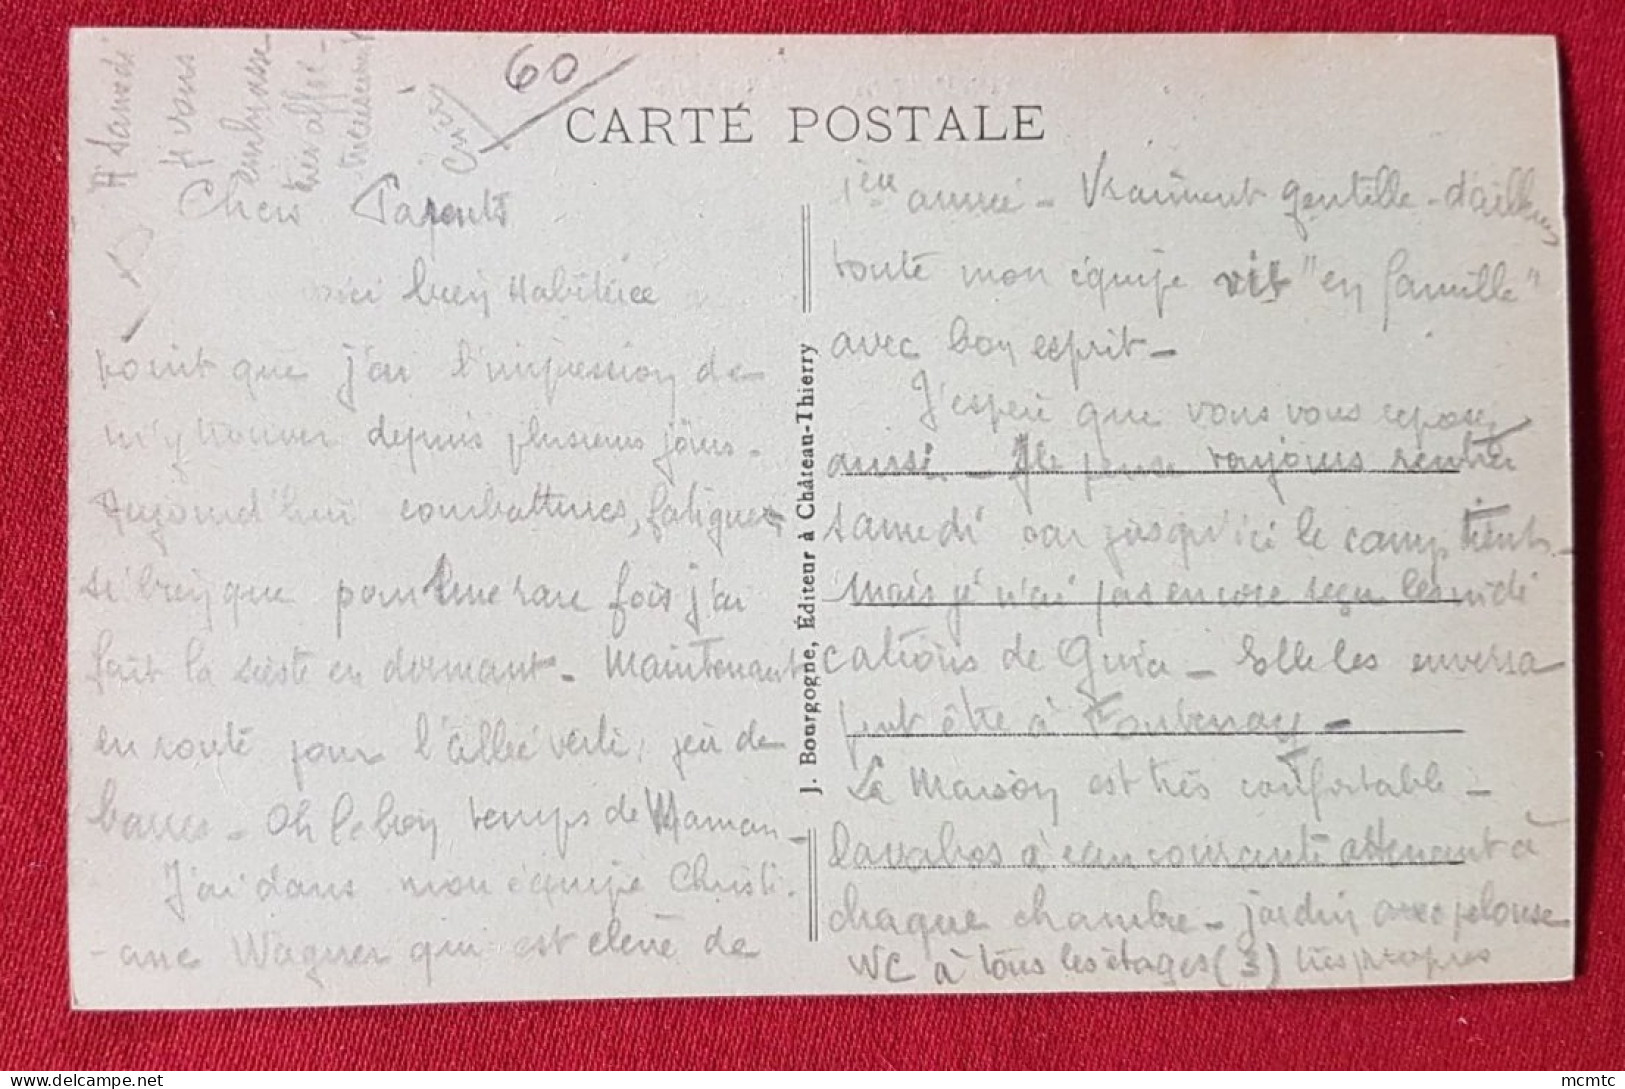 60
CARTE POSTALE
A Samedi
Je vous
embrasse
très affec-
tueusement
Chers Parents
bien habituée
point que j'ai l'impression de
m'y trouver depuis plusieurs jours.
Aujourd'hui combattues, fatigues
si bien que pour une rare fois j'ai
fait la sieste en dormant. Maintenant
en route pour l'allée verte, jeu de
barres. Oh le bon temps de Maman.
J'ai dans mon équipe Christi-
-ane Wagner qui est élève de
J. Bourgogne, Éditeur à Château-Thierry
1ère année - Vraiment gentille - d'ailleurs
toute mon équipe vit "en famille"
avec bon esprit -
J'espère que vous vous reposez
aussi - Je pense toujours rentrer
samedi car jusqu'ici le camp tient.
Mais je n'ai pas encore reçu les indi
cations de - Elle les enverra
peut être à Fontenay -
La Maison est très confortable -
lavabos à eau courante attenant à
chaque chambre - jardin avec pelouse
WC à tous les étages (3) très propres
mcmtc